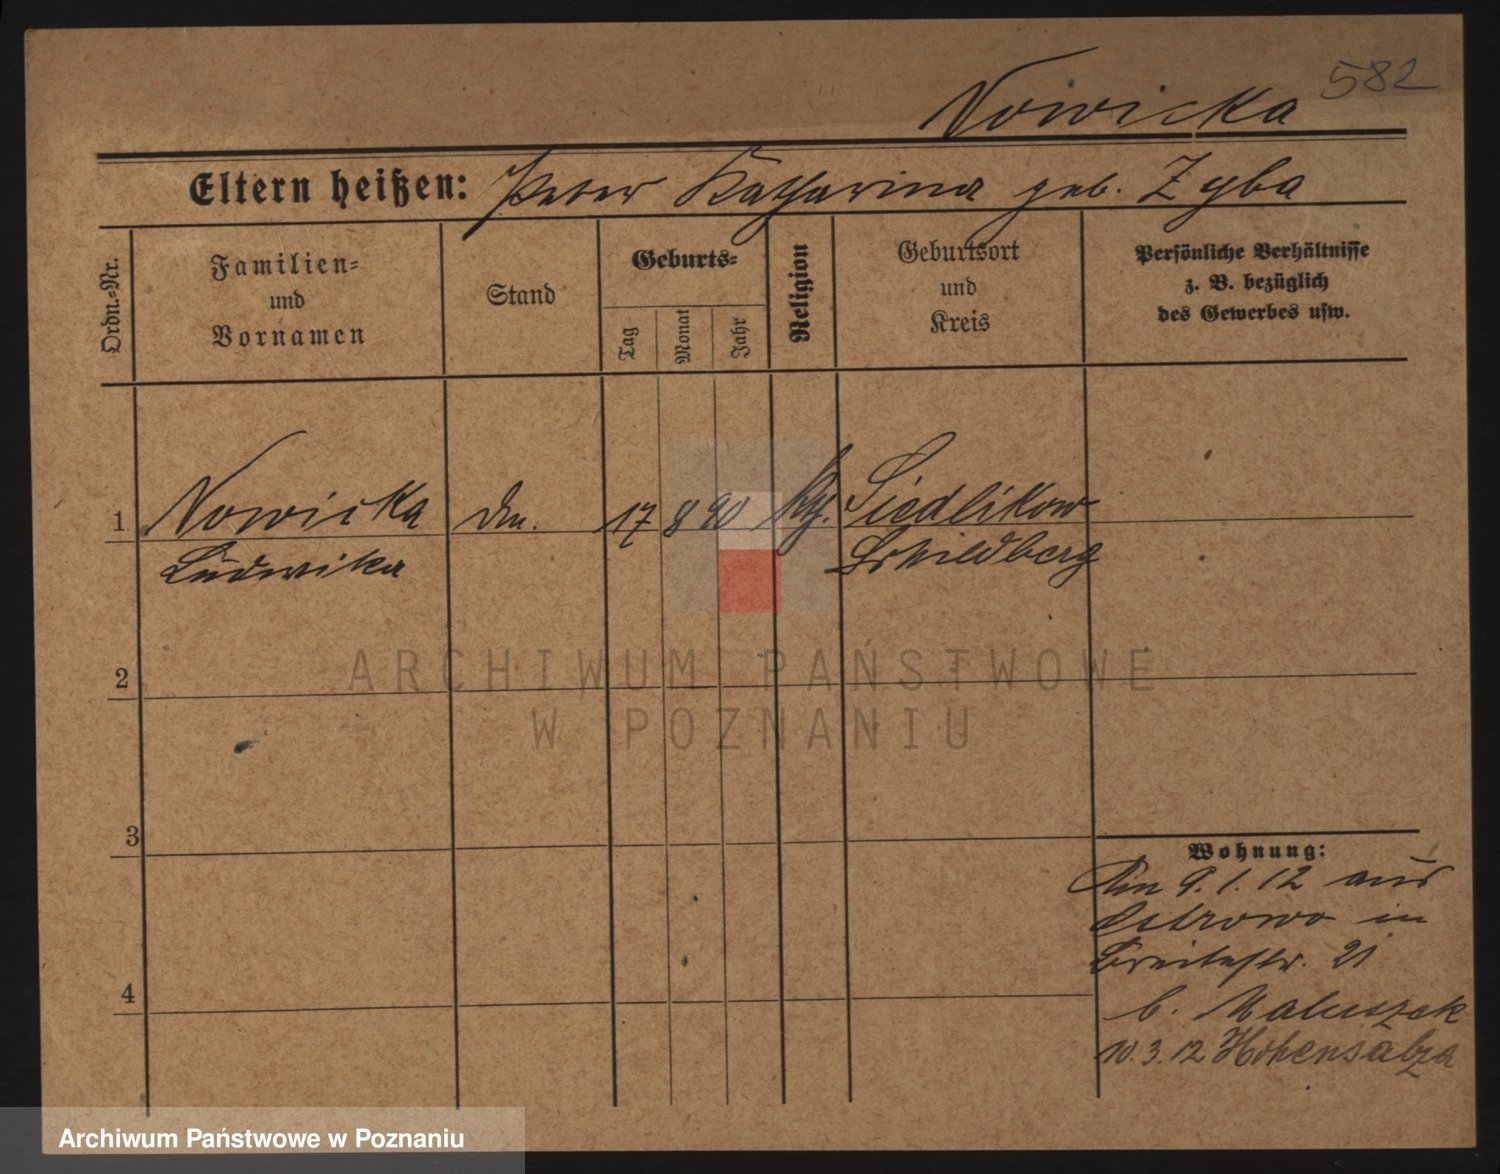 582
Nowicka
Eltern heißen: Peter Katharina geb. Zyba
Ordn.=Nr.
Familien=
und
Vornamen
Stand
Geburts=
Tag
Monat
Jahr
Religion
Geburtsort
und
Kreis
Persönliche Verhältnisse
z. B. bezüglich
des Gewerbes usw.
1 Nowicka 17 8 90 Siedlikow
Ludwika Schildberg
2
3
4
Wohnung:
Am 9.1.12 aus
Ostrowo in
Breitestr. 21
b. Maluszek
10.3.12 Hohensalza
ARCHIWUM PAŃSTWOWE
W POZNANIU
Archiwum Państwowe w Poznaniu